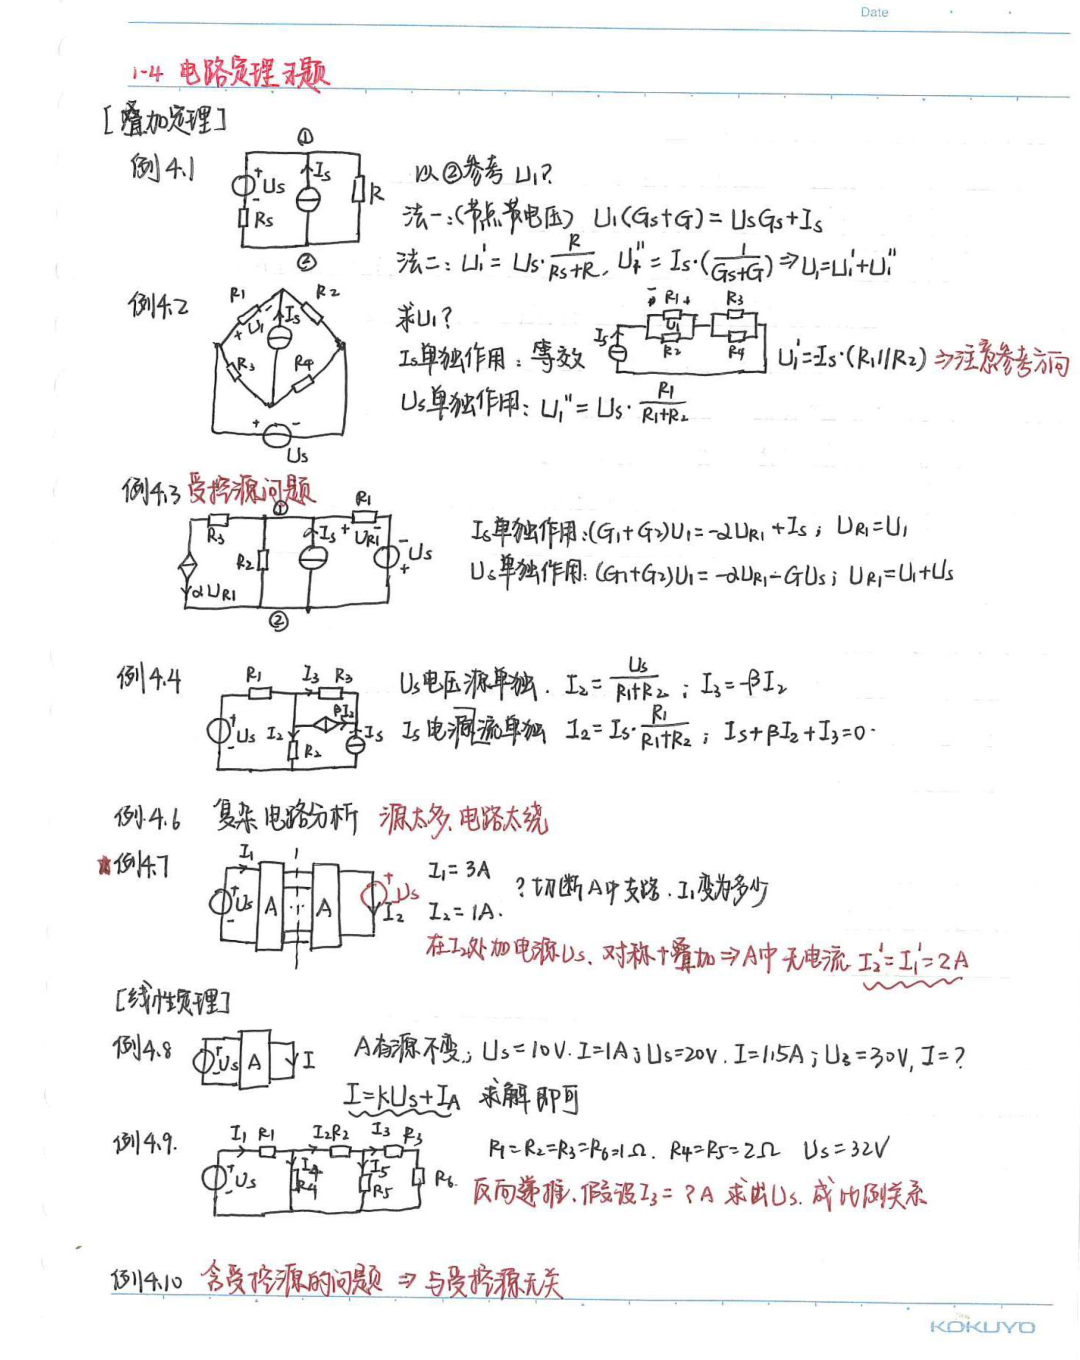 Date
1-4 电路定理习题
[叠加定理]
例4.1
①
Us
Is
R
Rs
②
以②参考 U1?
法一:(节点节电压) U1(Gs+G)=UsGs+Is
法二: U1'=Us·R/(Rs+R), U1''=Is·(1/(Gs+G))⇒U1=U1'+U1''
例4.2
R1
R2
U1
Is
R3
R4
Us
求U1?
Is单独作用:等效
Is
R1
U1
R2
R3
R4
U1'=-Is·(R1//R2) ⇒注意参考方向
Us单独作用: U1''=Us·R1/(R1+R2)
例4.3 受控源问题
①
R3
R2
Is
R1
UR1
Us
αUR1
②
Is单独作用:(G1+G2)U1=-αUR1+Is; UR1=U1
Us单独作用:(G1+G2)U1=-αUR1-GUs; UR1=U1+Us
例4.4
R1
I3
R3
βI2
Us
I2
R2
Is
Us电压源单独. I2=Us/(R1+R2); I3=-βI2
Is电源流单独 I2=Is·R1/(R1+R2); Is+βI2+I3=0.
例4.6 复杂电路分析 源太多、电路太绕
例4.7
I1
Us
A
A
Us
I2
I1=3A
I2=1A.
?切断A中支路.I1变为多少
在I2处加电源Us、对称+叠加⇒A中无电流 I2'=I1'=2A
[线性定理]
例4.8
Us
A
I
A有源不变; Us=10V.I=1A;Us=20V.I=1.5A;Us=30V,I=?
I=kUs+IA 求解即可
例4.9.
I1 R1
I2R2
I3 R3
I4
R4
I5
R5
R6
Us
R1=R2=R3=R6=1Ω. R4=R5=2Ω Us=32V
反向递推.假设I3=?A 求出Us.成比例关系
例4.10 含受控源的问题⇒与受控源无关
KOKUYO